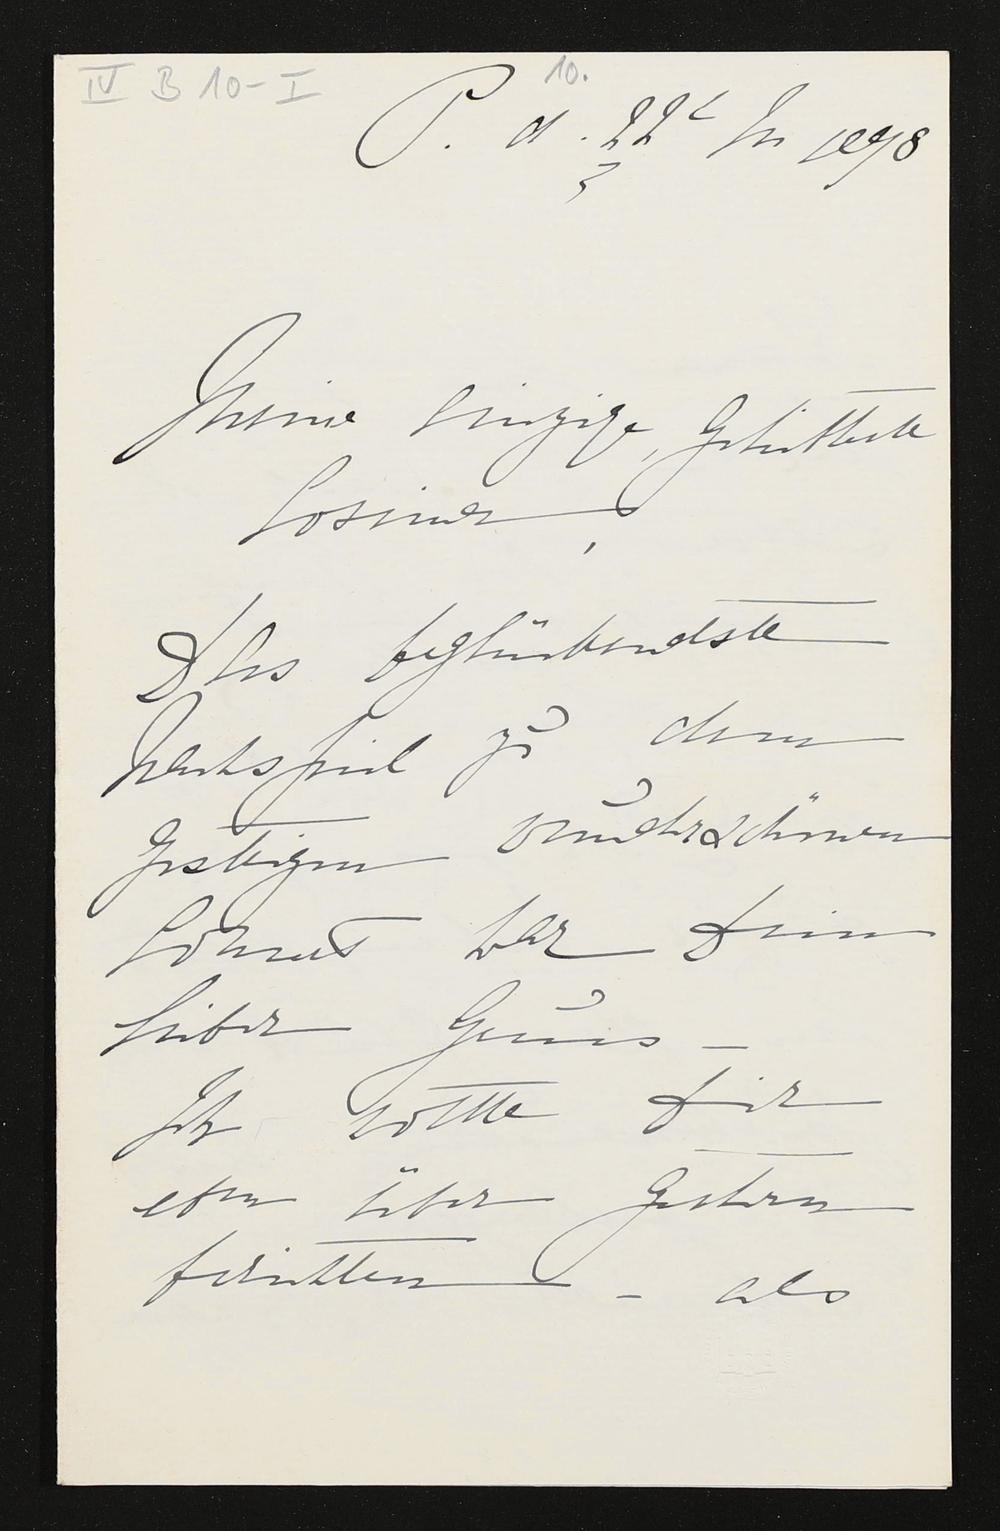 IV B 10-I
10.
P. d. 22t 1898
3
Meine einzige, Geliebteste
Cosima,
Das beglückendste
Nachspiel zu dem
gestrigen wunderschönen
Concert war Dein
lieber Gruss –
Ich wollte Dir
eben über Gestern
berichten – als